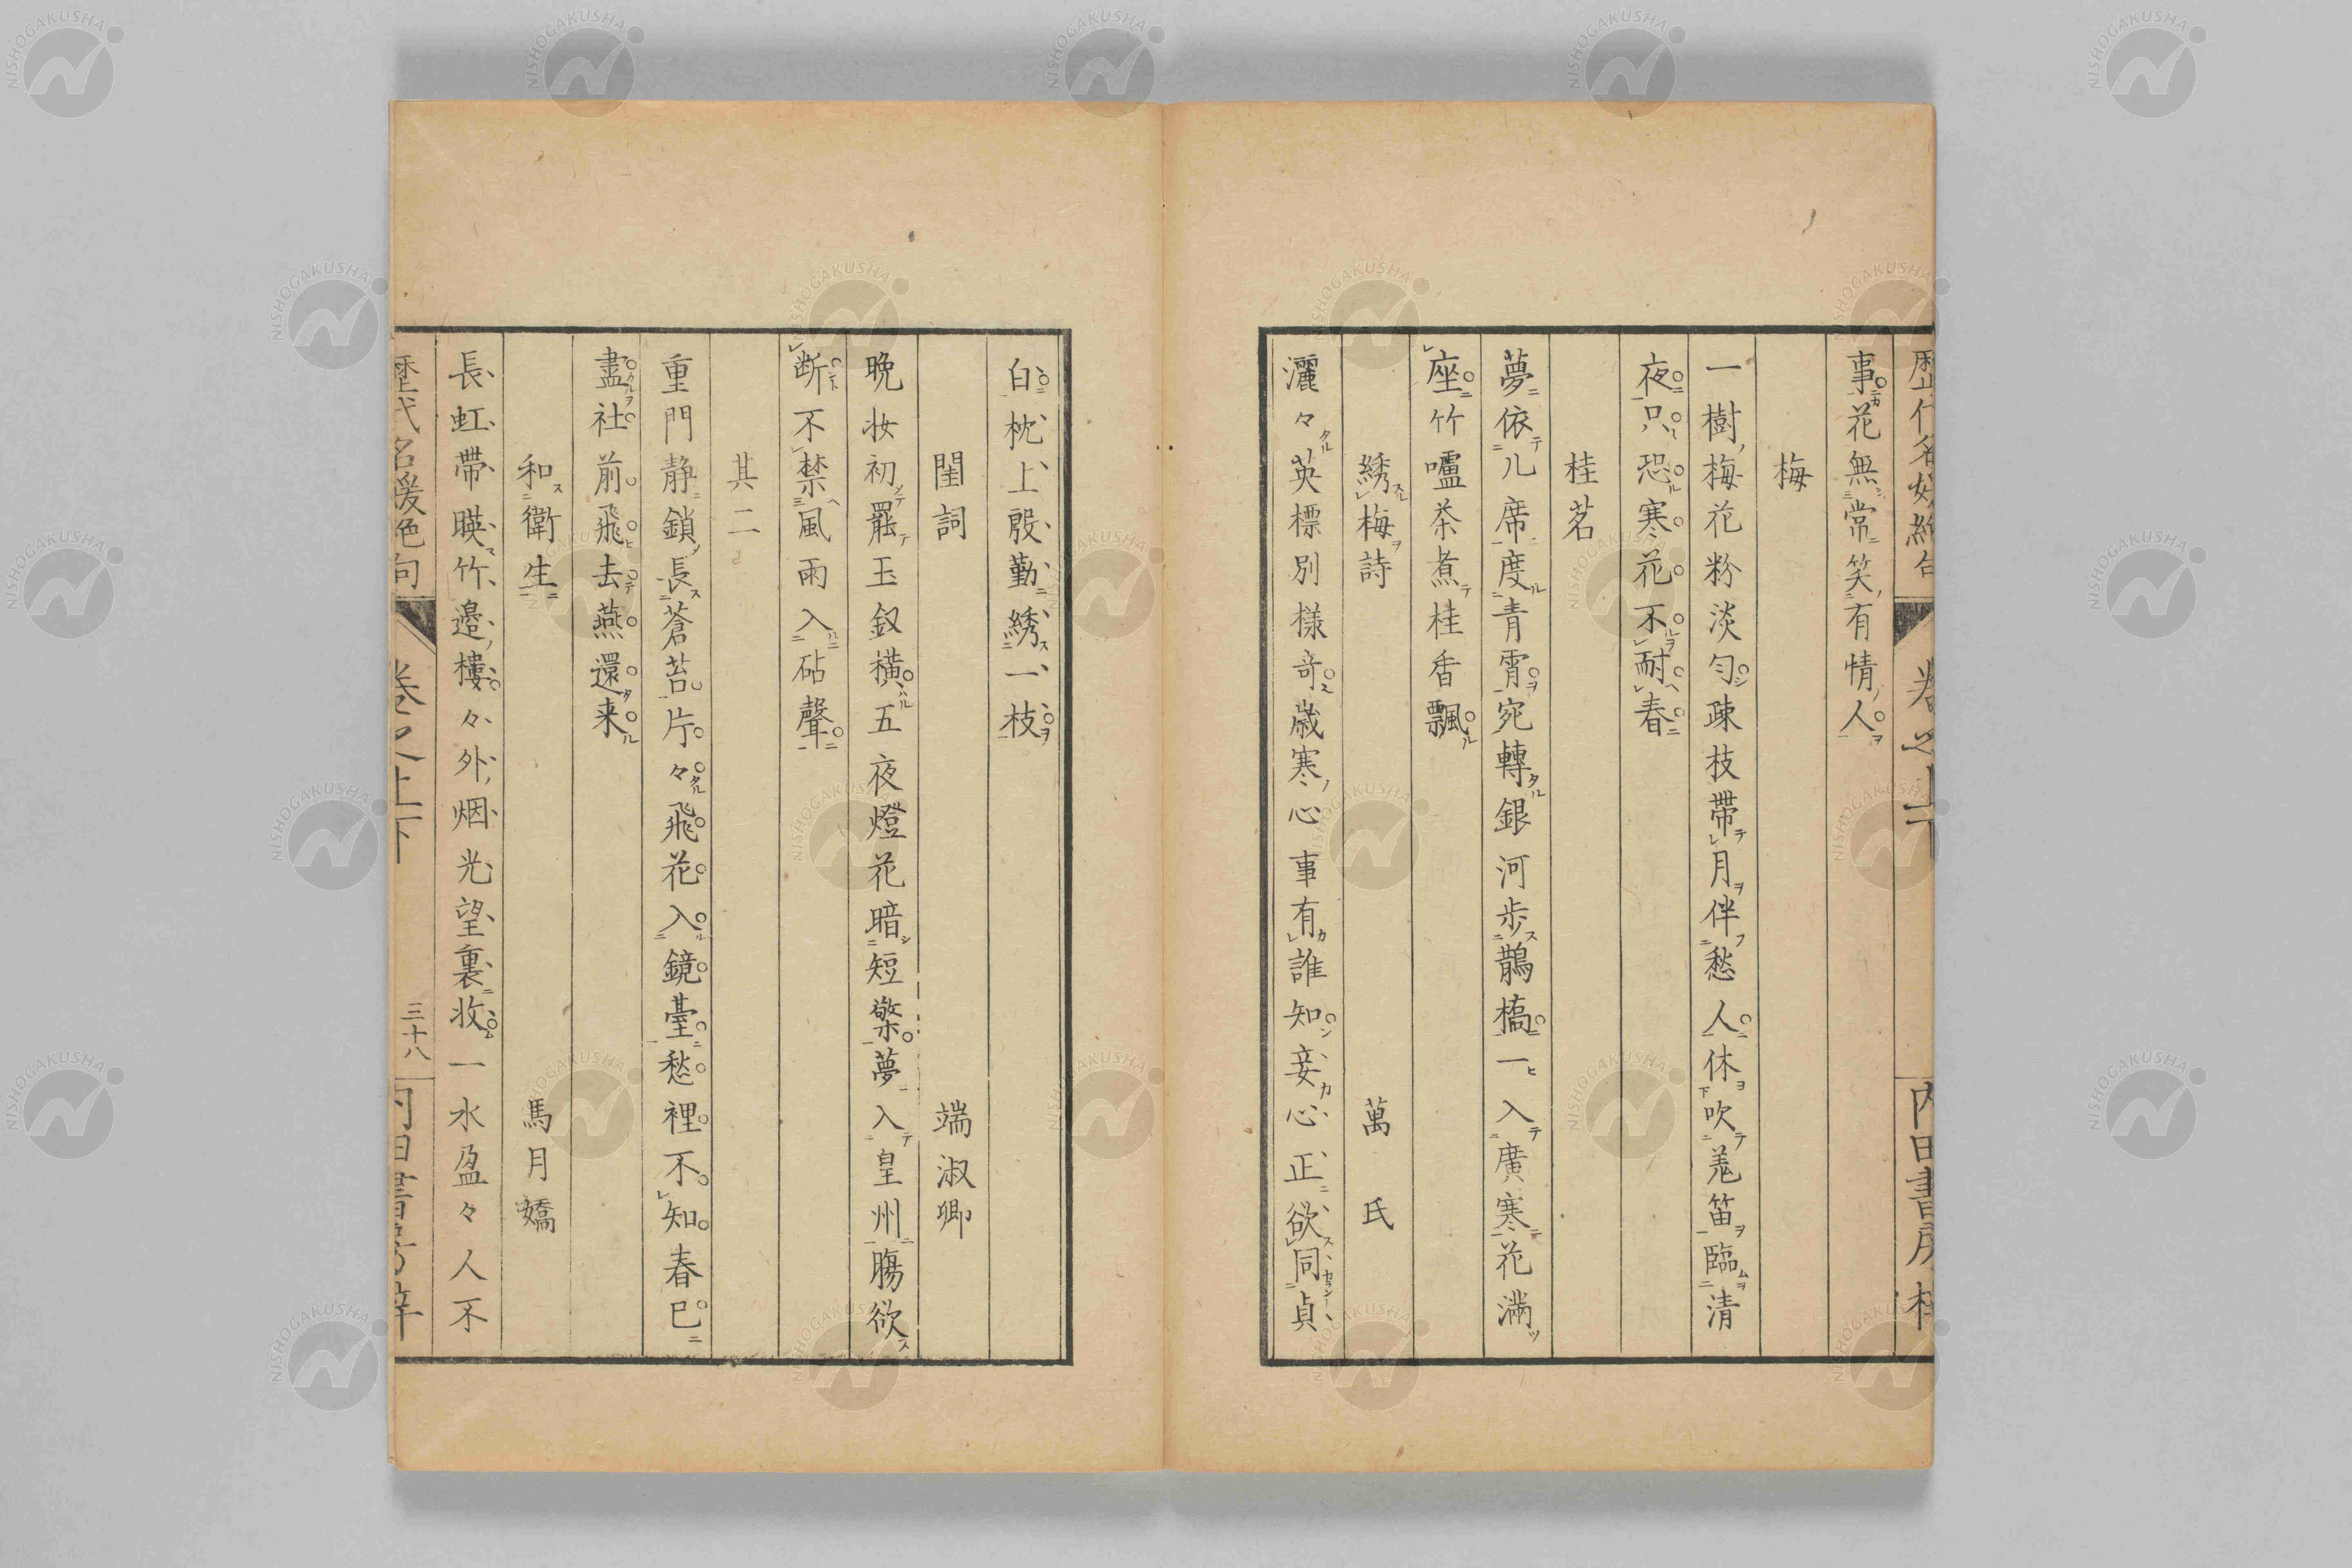 事花無常笑有情人
梅
一樹梅花粉淡勻疎枝帶月伴愁人休吹羗笛臨清
夜只恐寒花不耐春
桂茗
夢依几席度青霄宛轉銀河歩鵲橋一入廣寒花滿
座竹嚧茶煮桂香飄
綉梅詩 萬氏
灑々英標別様竒歳寒心事有誰知妾心正欲同貞
白枕上殷勤綉一枝
閨詞 端淑卿
晩妝初罷玉釵橫五夜燈花暗短檠夢入皇州腸欲
断不禁風雨入砧聲
其二
重門静鎖長蒼苔片々飛花入鏡臺愁裡不知春已
盡社前飛去燕還来
和衛生 馬月嬌
長虹帶暎竹邉樓々外烟光望裏收一水盈々人不
歴代名媛絶句 卷之上下 三十八 内田書房梓